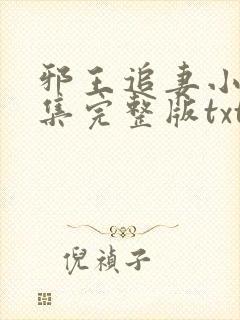 邪王追妻小
集完整版txt
倪禎子